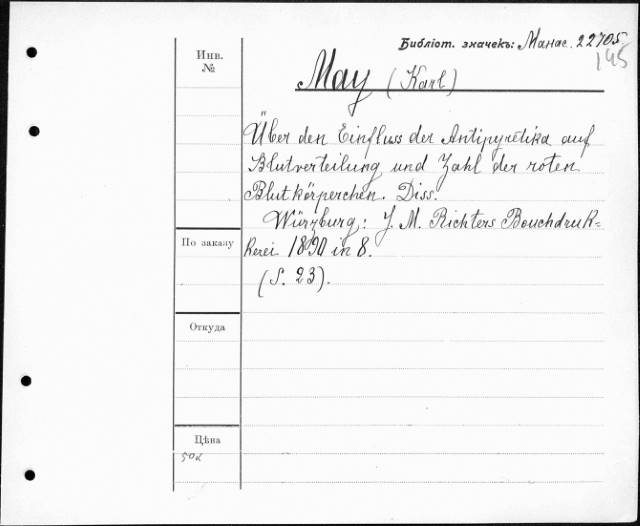 Библіот. значекъ: Манас. 22705
195
Инв.
№
May (Karl)
Über den Einfluss der Antipyretika auf
Blutverteilung und Zahl der roten
Blutkörperchen. Diss.
Würzburg: J. M. Richters Bouchdruk=
По заказу
kerei 1890 in 8.
(S. 23).
Откуда
Цѣна
50к